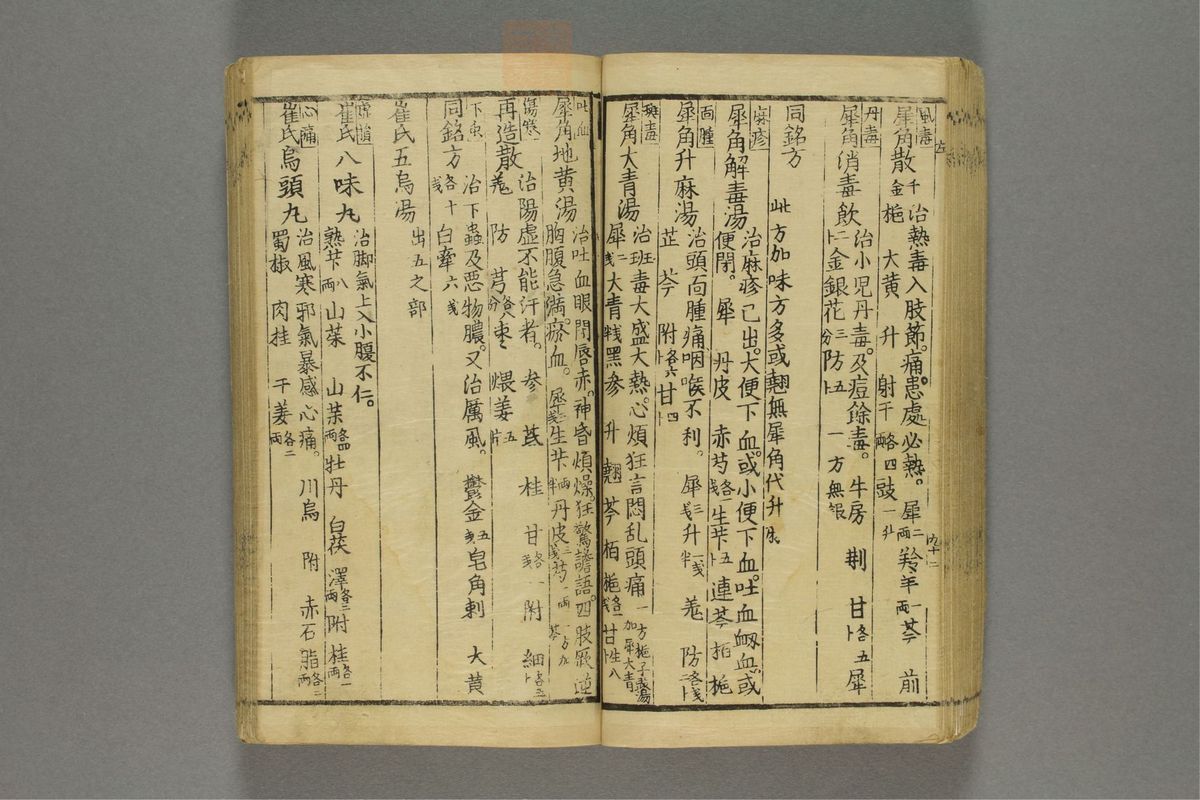 風毒
犀角散 千金 治熱毒入肢節。痛患處必熱。犀二両羚羊一両芩 前
梔 大黄 升 射干各四両豉一升
丹毒
犀角消毒飲 治小児丹毒。及痘餘毒。牛房 荆 甘各五卜犀
二卜金銀花三分防五卜 一方無銀
同銘方 此方加味方多或翹無犀角代升麻
麻疹
犀角解毒湯 治麻疹已出。大便下血。或小便下血。吐血衂血。或
便閉。犀 丹皮 赤芍各一戋生芐五卜連芩栢梔
面腫
犀角升麻湯 治頭面腫痛。咽喉不利。犀三戋升一戋半羗 防各二戋
芷 芩 附各六卜甘四卜
斑毒
犀角大青湯 治斑毒大盛大熱。心煩狂言悶乱頭痛 一方梔子豉湯加犀大青
犀二戋大青半戋黑参 升 翹 芩 栢 梔各一戋甘生八卜
吐血
犀角地黄湯 治吐血眼閉唇赤。神昏煩燥。狂驚譫語。四肢厥逆
胸腹急満。瘀血。犀三戋生芐両半丹皮三戋芍一両 一方加芩
傷寒
再造散 治陽虚不能汗者。参 芪 桂 甘各一戋附 細各五卜
羗 防 芎各八分棗 煨姜五片
下虫
同銘方 治下蟲及悪物膿。又治厲風。鬱金五戋皂角刺 大黄
各十戋白牽六戋
崔氏五烏湯 出五之部
虚損
崔氏八味丸 治脚氣上入小腹不仁。
熟芐八両山茱 山茱各四両牡丹 白茯 澤各三両附 桂各一両
心痛
崔氏烏頭丸 治風寒邪氣暴感心痛。川烏 附 赤石脂各二両
蜀椒 肉桂 干姜各二両